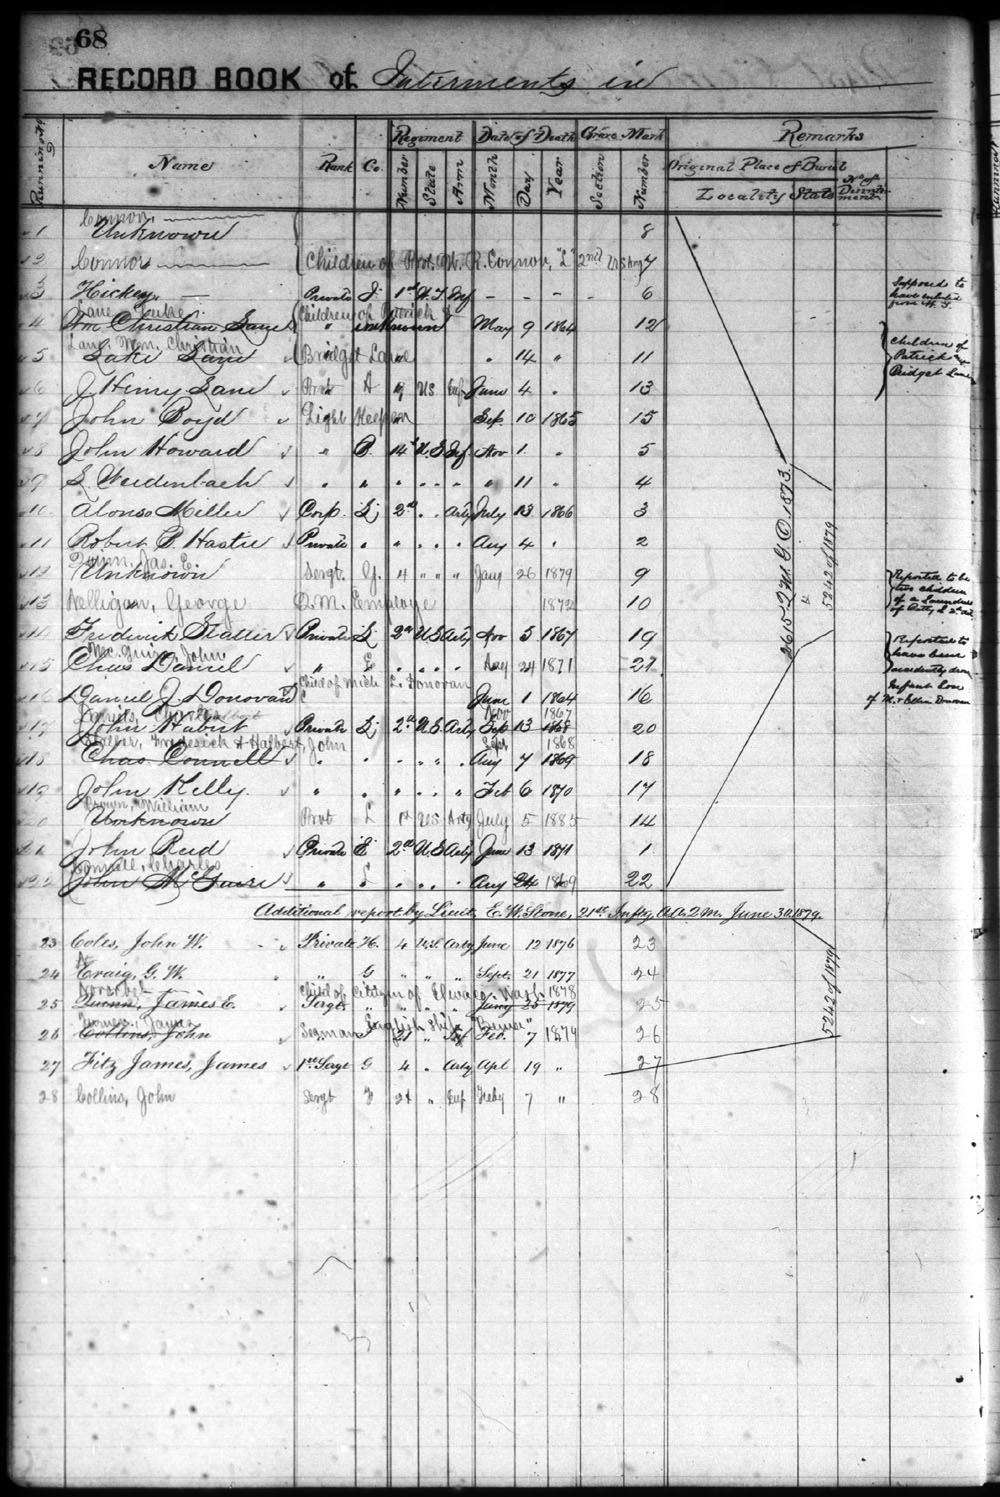 68
RECORD BOOK of Interments in
Running No
Name
Rank
Co.
Regiment
Number
State
Arm
Date of Death
Month
Day
Year
Grave Mark
Section
Number
Remarks
Original Place of Burial
Locality
State
No. of Disinterment
Connor,
1 Unknown 8
2 Connor Children of Prvt. W. R. Connor, "L" 2nd US Arty 7
3 Hickey Private I 1st W.T. Inf - - - 6
Supposed to
have enlisted
from W.T.
Lane Luke Children of Patrick &
4 Wm Christian Lane " unknown May 9 1864 12
Lane, Wm. Christian
5 Luke Lane Bridget Lane " 14 " 11
Children of
Patrick and
Bridget Lane
6 J Henry Lane Prvt A 9 US Inf June 4 " 13
7 John Boyd Light Keeper Sep. 10 1865 15
8 John Howard " B. 14th U.S. Inf. Nov 1. " 5
9 L Weidenbach " " " " " " 11 " 4
10 Alonso Miller Corp. L 2nd " " Arty July 13 1866 3
11 Robert B. Hastie Private " " " " Aug 4 " 2
Quinn, Jas. E.
12 Unknown Sergt. G. 4 " " " Jany 26 1879 9
13 Nelligan, George Q.M. Employe 1872 10
Reported to be
two children
of a Laundress
of Arty L 2nd Art
14 Frederick Statler Private L 2nd U.S. Arty Nov 5 1867 19
Mc.Guire, John
15 Chas Daniel " L " " " " Aug 24 1871 21
Reported to
have been
accidently drow
Child of Mich. L. Donovan
16 Daniel J. Donovan June 1 1864 16
Infant Son
of M. & Ellen Donovan
Daniels, Charles Nov 1867
17 John Habut Private L 2nd U.S. Arty Sep 13 1868 20
Statler, Frederick & Halbert, John Sept 1868
18 Chas Connell " " " " " Aug 7 1869 18
19 John Kelly " " " " " " Feb 6 1870 17
Brown, William
20 Unknown Prvt L 1st US Arty July 5 1885 14
21 John Reed Private E 2nd U.S. Arty June 13 1871 1
Connell, Charles
22 John McGuire " L " " " Aug 24 1869 22
2615-2 M.G.O. 1873.
&
5242 of 1879
Additional report by Lieut. E. W. Stone, 21st Infty A.A.Q.M. June 30. 1879.
23 Coles, John W. Private H. 4 U.S. Arty June 12 1876 23
24 Craig, G. W. " G " " " Sept. 21 1877 24
Child of Citizen of Elwaco, Wash. 1878
25 Quinn, James E. Sergt. " " " " Jany 25 1879 25
English Ship
26 Collins, John Seaman 21 " Inf Feb. 7 1879 26
27 Fitz James, James 1st Sergt G 4 " Arty Apl 19 " 27
28 Collins, John Sergt F 21 " Inf Feby 7 " 28
5242 of 1879